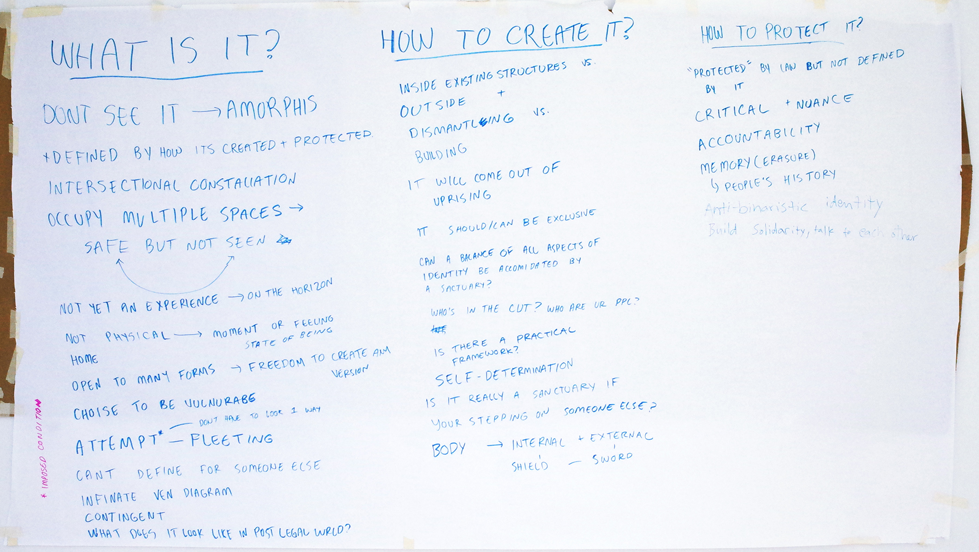 WHAT IS IT?
DONT SEE IT → AMORPHIS
*DEFINED BY HOW ITS CREATED + PROTECTED.
INTERSECTIONAL CONSTALIATION
OCCUPY MULTIPLE SPACES →
SAFE BUT NOT SEEN
NOT YET AN EXPERIENCE → ON THE HORIZON
NOT PHYSICAL → MOMENT OR FEELING
STATE OF BEING
HOME
OPEN TO MANY FORMS → FREEDOM TO CREATE ANY
VERSION
CHOISE TO BE VULNURABE
DON'T HAVE TO LOOK 1 WAY
ATTEMPT* — FLEETING
CANT DEFINE FOR SOMEONE ELSE
INFINATE VEN DIAGRAM
CONTINGENT
WHAT DOES IT LOOK LIKE IN POST LEGAL WRLD?
* IMPOSED CONDITION
HOW TO CREATE IT?
INSIDE EXISTING STRUCTURES VS.
OUTSIDE +
DISMANTLING VS.
BUILDING
IT WILL COME OUT OF
UPRISING
IT SHOULD/CAN BE EXCLUSIVE
CAN A BALANCE OF ALL ASPECTS OF
IDENTITY BE ACCOMIDATED BY
A SANCTUARY?
WHO'S IN THE CUT? WHO ARE UR PPL?
IS THERE A PRACTICAL
FRAMEWORK?
SELF-DETERMINATION
IS IT REALLY A SANCTUARY IF
YOUR STEPPING ON SOMEONE ELSE?
BODY → INTERNAL + EXTERNAL
SHIELD — SWORD
HOW TO PROTECT IT?
"PROTECTED" BY LAW BUT NOT DEFINED
BY IT
CRITICAL + NUANCE
ACCOUNTABILITY
MEMORY (ERASURE)
↳ PEOPLE'S HISTORY
Anti-binaristic identity
Build Solidarity, talk to each other